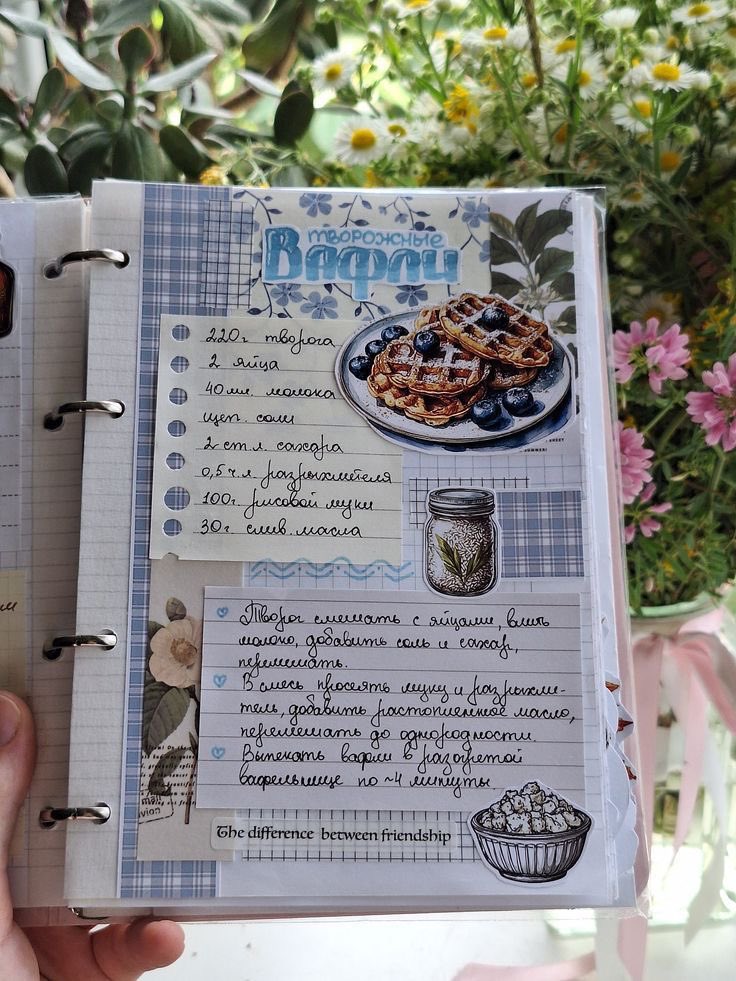 творожные
Вафли
220г творога
2 яйца
40мл. молока
щеп. соли
2 ст.л. сахара
0,5 ч.л. разрыхлителя
100г рисовой муки
30г слив. масла
Творог смешать с яйцами, влить
молоко, добавить соль и сахар,
перемешать.
В смесь просеять муку и разрыхли-
тель, добавить растопленное масло,
перемешать до однородности.
Выпекать вафли в разогретой
вафельнице по ~4 минуты
The difference between friendship